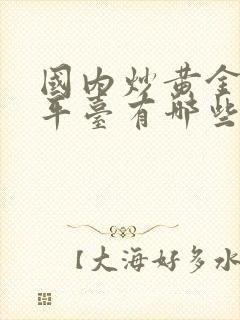 國内炒黄金
平臺有哪些
【大海好多水